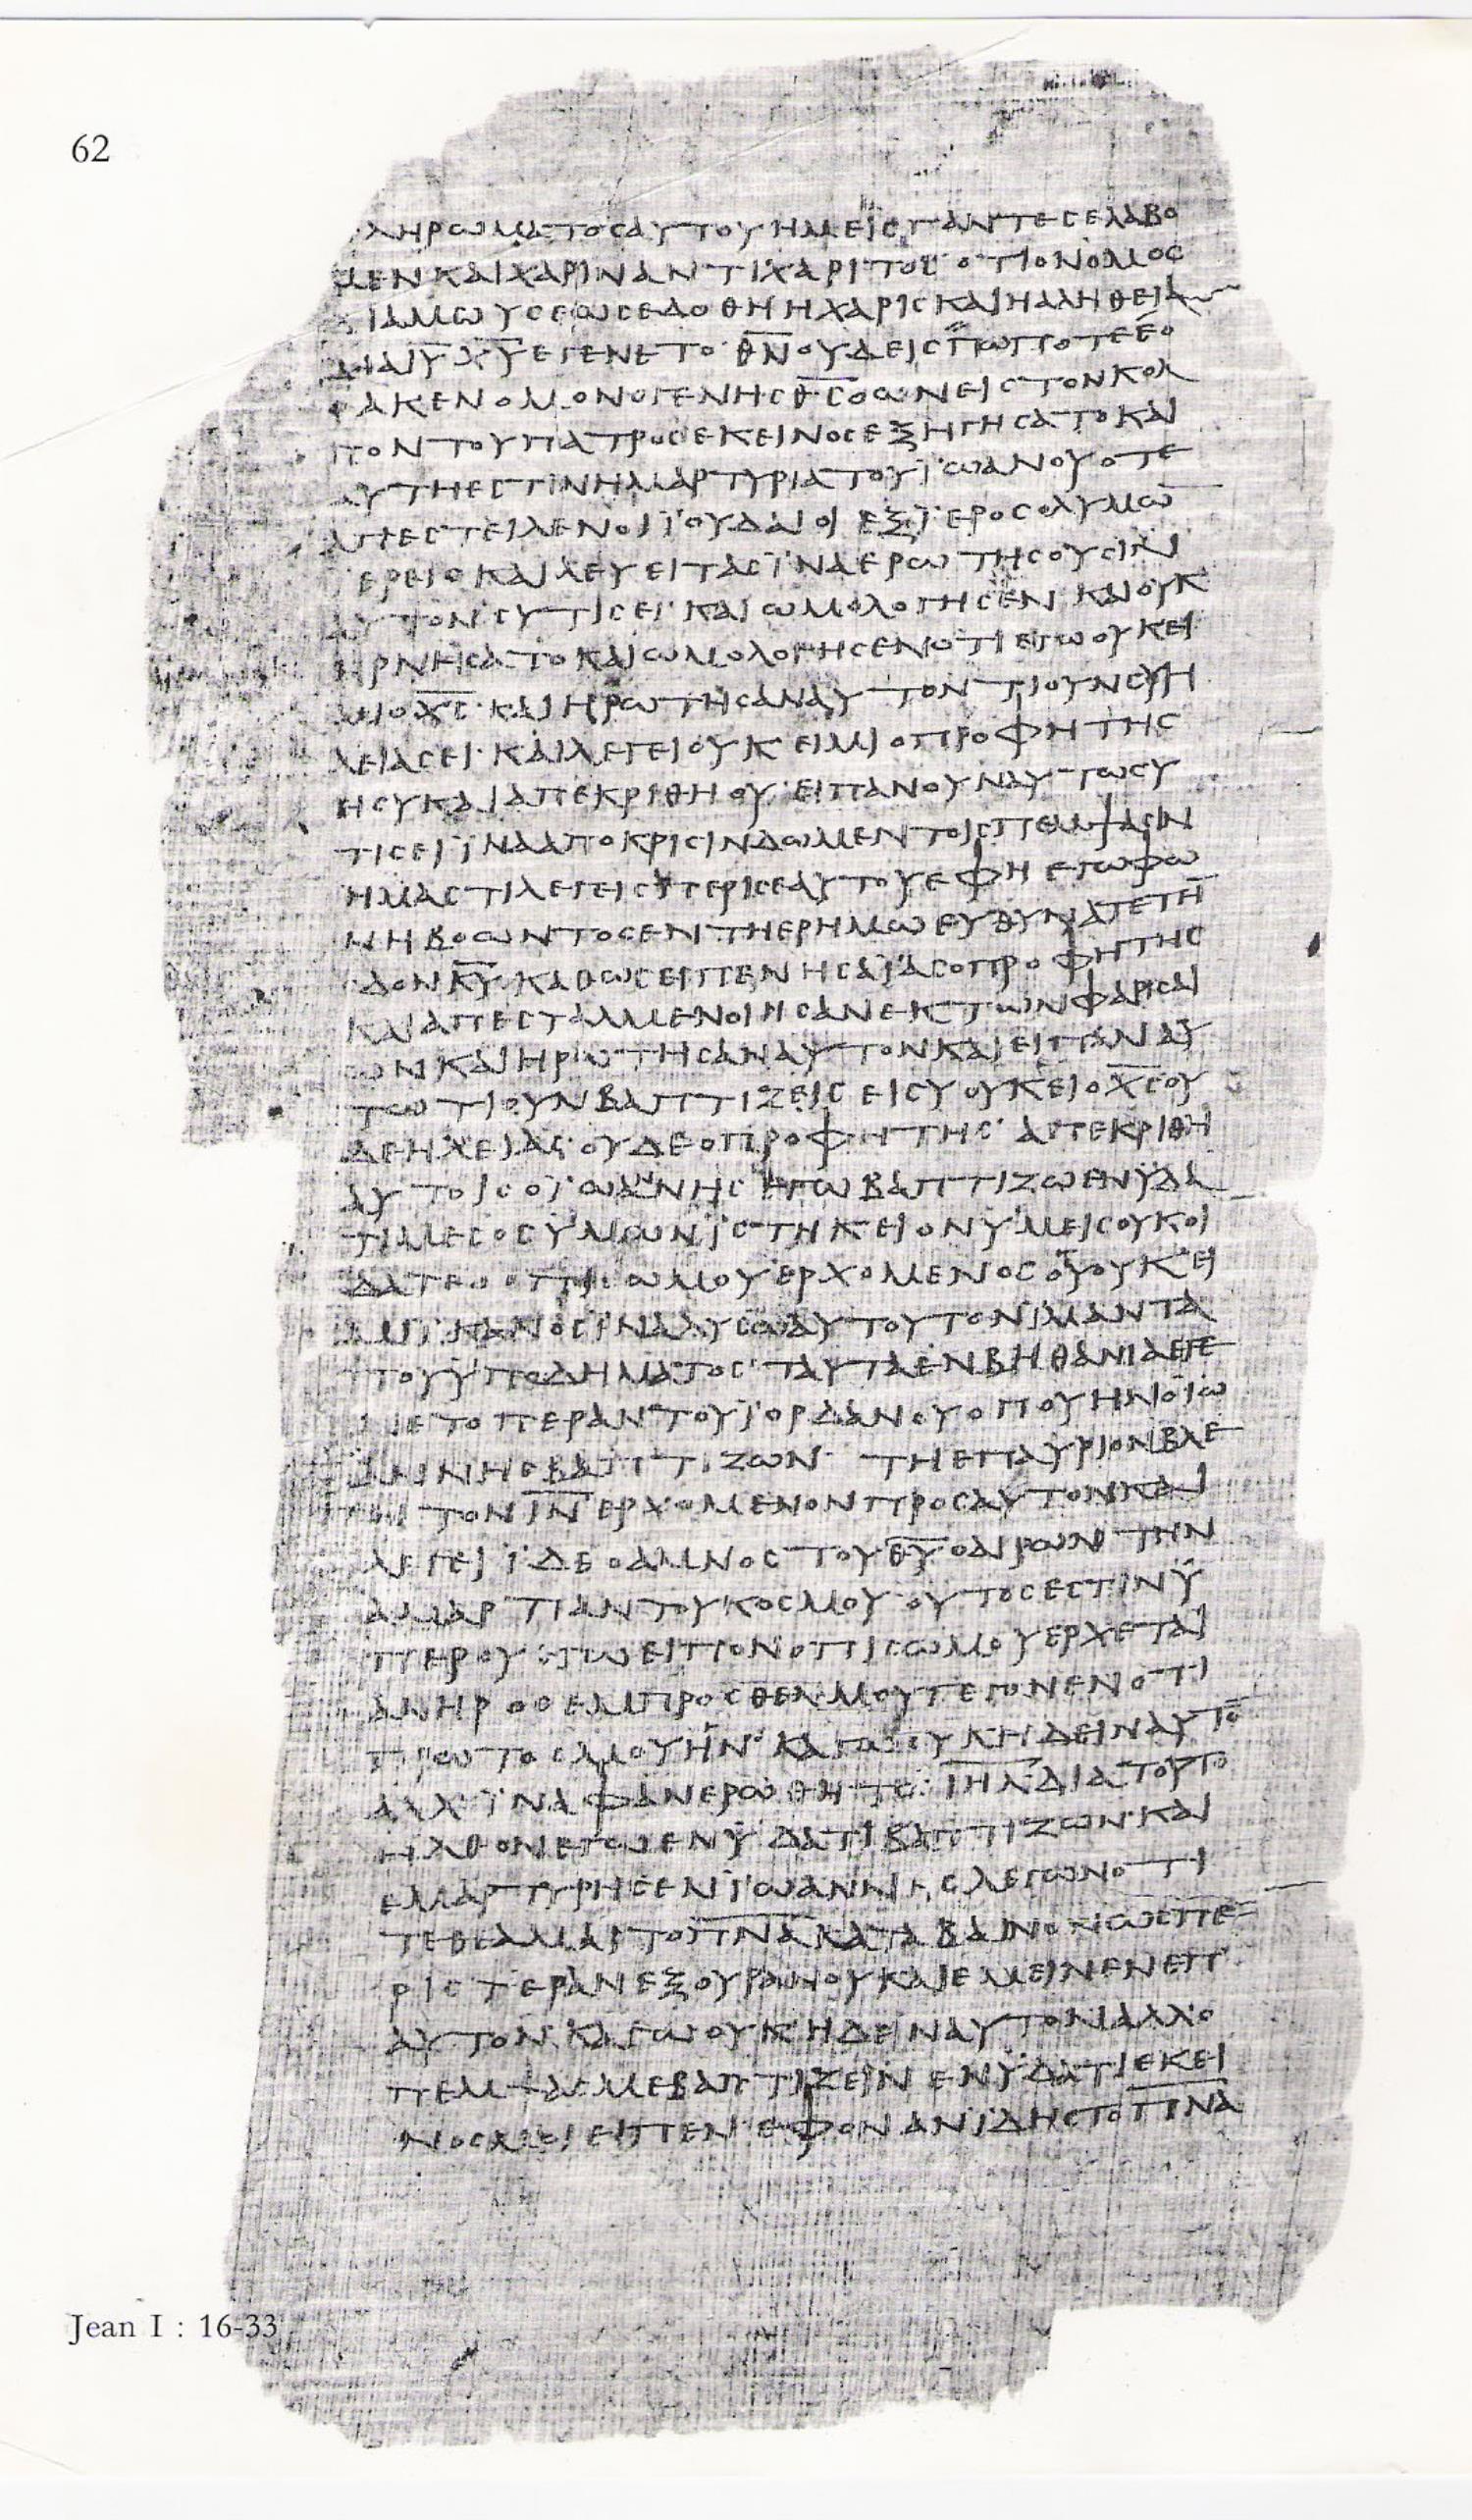 62
ΛΗΡΩΜΑΤΟСΑΥΤΟΥΗΜΕΙСΠΑΝΤΕСΕΛΑΒΟ
ΜΕΝΚΑΙΧΑΡΙΝΑΝΤΙΧΑΡΙΤΟС·ΟΤΙΟΝΟΜΟС
ΙΑΜΩΥСΕΩСΕΔΟΘΗΗΧΑΡΙСΚΑΙΗΑΛΗΘΕΙΑ
ΔΙΑΙ̅Υ̅Χ̅Υ̅ΕΓΕΝΕΤΟ·Θ̅Ν̅ΟΥΔΕΙСΠΩΠΟΤΕΕΟ
ΡΑΚΕΝΟΜΟΝΟΓΕΝΗСΘ̅С̅ΟΩΝΕΙСΤΟΝΚΟΛ
ΠΟΝΤΟΥΠΑΤΡΟСΕΚΕΙΝΟСΕΞΗΓΗСΑΤΟΚΑΙ
ΑΥΤΗΕСΤΙΝΗΜΑΡΤΥΡΙΑΤΟΥΪΩΑΝΟΥΟΤΕ
ΑΠΕСΤΕΙΛΕΝΟΙΪΟΥΔΑΙΟΙΕΞΪΕΡΟСΟΛΥΜΩ̅
ΕΡΕΙСΚΑΙΛΕΥΕΙΤΑСΪΝΑΕΡΩΤΗСΟΥСΙΝ
ΑΥΤΟΝСΥΤΙСΕΙ·ΚΑΙΩΜΟΛΟΓΗСΕΝ·ΚΑΙΟΥΚ
ΗΡΝΗСΑΤΟΚΑΙΩΜΟΛΟΓΗСΕΝΟΤΙΕΓΩΟΥΚΕΙ
ΜΙΟΧ̅С̅·ΚΑΙΗΡΩΤΗСΑΝΑΥΤΟΝΤΙΟΥΝСΥΗ
ΛΕΙΑСΕΙ·ΚΑΙΛΕΓΕΙΟΥΚΕΙΜΙΟΠΡΟΦΗΤΗС
ΗСΥΚΑΙΑΠΕΚΡΙΘΗΟΥ·ΕΙΠΑΝΟΥΝΑΥΤΩСΥ
ΤΙСΕΙΪΝΑΑΠΟΚΡΙСΙΝΔΩΜΕΝΤΟΙСΠΕΜΨΑСΙΝ
ΗΜΑСΤΙΛΕΓΕΙСΠΕΡΙСΕΑΥΤΟΥΕΦΗΕΓΩΦΩ
ΝΗΒΟΩΝΤΟСΕΝΤΗΕΡΗΜΩΕΥΘΥΝΑΤΕΤΗ̅
ΟΔΟΝΚ̅Υ̅·ΚΑΘΩСΕΙΠΕΝΗСΑΪΑСΟΠΡΟΦΗΤΗС
ΚΑΙΑΠΕСΤΑΛΜΕΝΟΙΗСΑΝΕΚΤΩΝΦΑΡΙСΑΙ
ΩΝΚΑΙΗΡΩΤΗСΑΝΑΥΤΟΝΚΑΙΕΙΠΑΝΑΥ
ΤΩΤΙΟΥΝΒΑΠΤΙΖΕΙСΕΙСΥΟΥΚΕΙΟΧ̅С̅ΟΥ
ΔΕΗΛΕΙΑС·ΟΥΔΕΟΠΡΟΦΗΤΗС·ΑΠΕΚΡΙΘΗ
ΑΥΤΟΙСΟΪΩΑΝΝΗСΕΓΩΒΑΠΤΙΖΩΕΝΫΔΑ
ΤΙΜΕСΟСΫΜΩΝΪСΤΗΚΕΙΟΝΫΜΕΙСΟΥΚΟΙ
ΔΑΤΕΟΟΠΙСΩΜΟΥΕΡΧΟΜΕΝΟСΟΥΟΥΚΕΙ
ΜΙΪΚΑΝΟСΪΝΑΛΥСΩΑΥΤΟΥΤΟΝΪΜΑΝΤΑ
ΤΟΥΫΠΟΔΗΜΑΤΟС·ΤΑΥΤΑΕΝΒΗΘΑΝΙΑΕΓΕ
ΝΕΤΟΠΕΡΑΝΤΟΥΪΟΡΔΑΝΟΥΟΠΟΥΗΝΟΪΩ
ΑΝΝΗСΒΑΠΤΙΖΩΝ· ΤΗΕΠΑΥΡΙΟΝΒΛΕ
ΠΕΙΤΟΝΙ̅Ν̅ΕΡΧΟΜΕΝΟΝΠΡΟСΑΥΤΟΝΚΑΙ
ΛΕΓΕΙΪΔΕΟΑΜΝΟСΤΟΥΘ̅Υ̅ΟΑΙΡΩΝΤΗΝ
ΑΜΑΡΤΙΑΝΤΟΥΚΟСΜΟΥΟΥΤΟСΕСΤΙΝΫ
ΠΕΡΟΥΕΓΩΕΙΠΟΝΟΠΙСΩΜΟΥΕΡΧΕΤΑΙ
ΑΝΗΡΟСΕΜΠΡΟСΘΕΝΜΟΥΓΕΓΟΝΕΝΟΤΙ
ΠΡΩΤΟСΜΟΥΗΝ·ΚΑΓΩΟΥΚΗΔΕΙΝΑΥΤΟ̅
ΑΛΛΪΝΑΦΑΝΕΡΩΘΗΤΩΙ̅Η̅Λ̅ΔΙΑΤΟΥΤΟ
ΗΛΘΟΝΕΓΩΕΝΫΔΑΤΙΒΑΠΤΙΖΩΝ·ΚΑΙ
ΕΜΑΡΤΥΡΗСΕΝΪΩΑΝΝΗСΛΕΓΩΝΟΤΙ
ΤΕΘΕΑΜΑΙΤΟΠ̅Ν̅Α̅ΚΑΤΑΒΑΙΝΟΝΩСΠΕ
ΡΙСΤΕΡΑΝΕΞΟΥΡΑΝΟΥΚΑΙΕΜΕΙΝΕΝΕΠ
ΑΥΤΟΝ·ΚΑΓΩΟΥΚΗΔΕΙΝΑΥΤΟΝΑΛΛΟ
ΠΕΜΨΑСΜΕΒΑΠΤΙΖΕΙΝΕΝΫΔΑΤΙΕΚΕΙ
ΝΟСΜΟΙΕΙΠΕΝ·ΕΦΟΝΑΝΪΔΗСΤΟΠ̅Ν̅Α̅
Jean I : 16-33